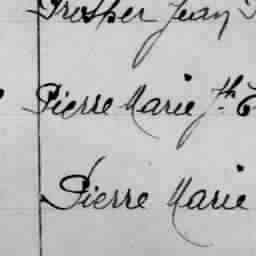 Prosper Jean
Pierre Marie Jh
Pierre Marie